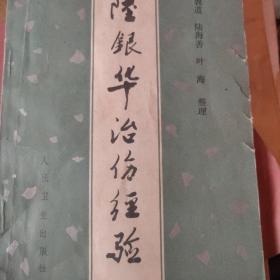 陸銀华治伤经验
道 陆海善 叶海 整理
人民卫生出版社